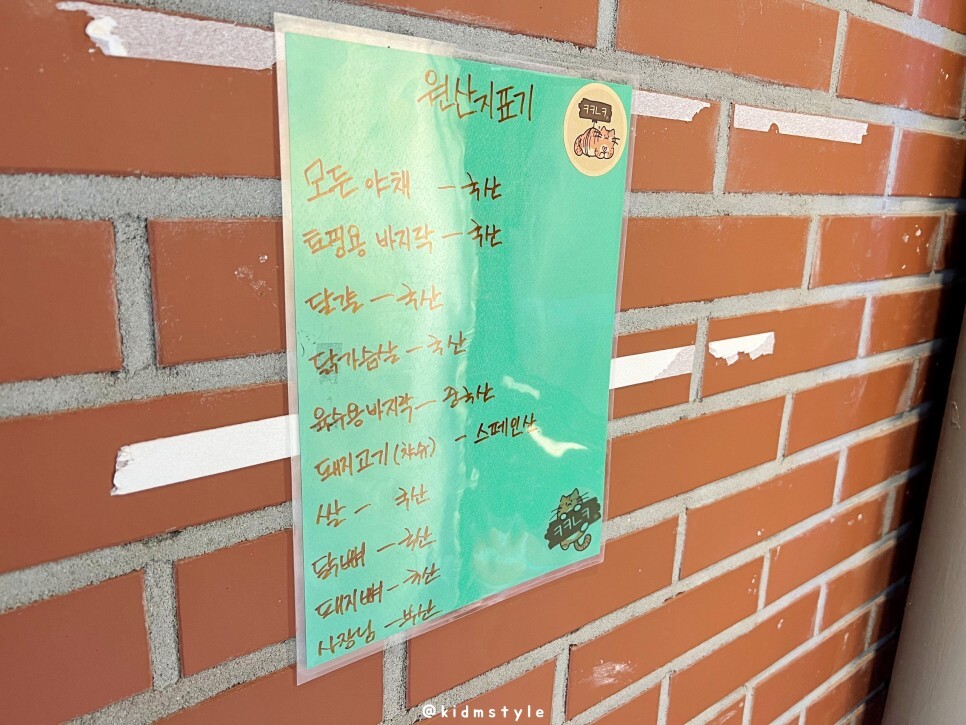 원산지표기
ㅋㅋㄴㅋ
모든 야채 – 국산
토핑용 바지락 – 국산
달걀 – 국산
닭가슴살 – 국산
육수용 바지락 – 중국산
돼지고기(차슈) – 스페인산
쌀 – 국산
닭뼈 – 국산
돼지뼈 – 국산
사장님 – 부산
ㅋㅋㄴㅋ
@kidmstyle